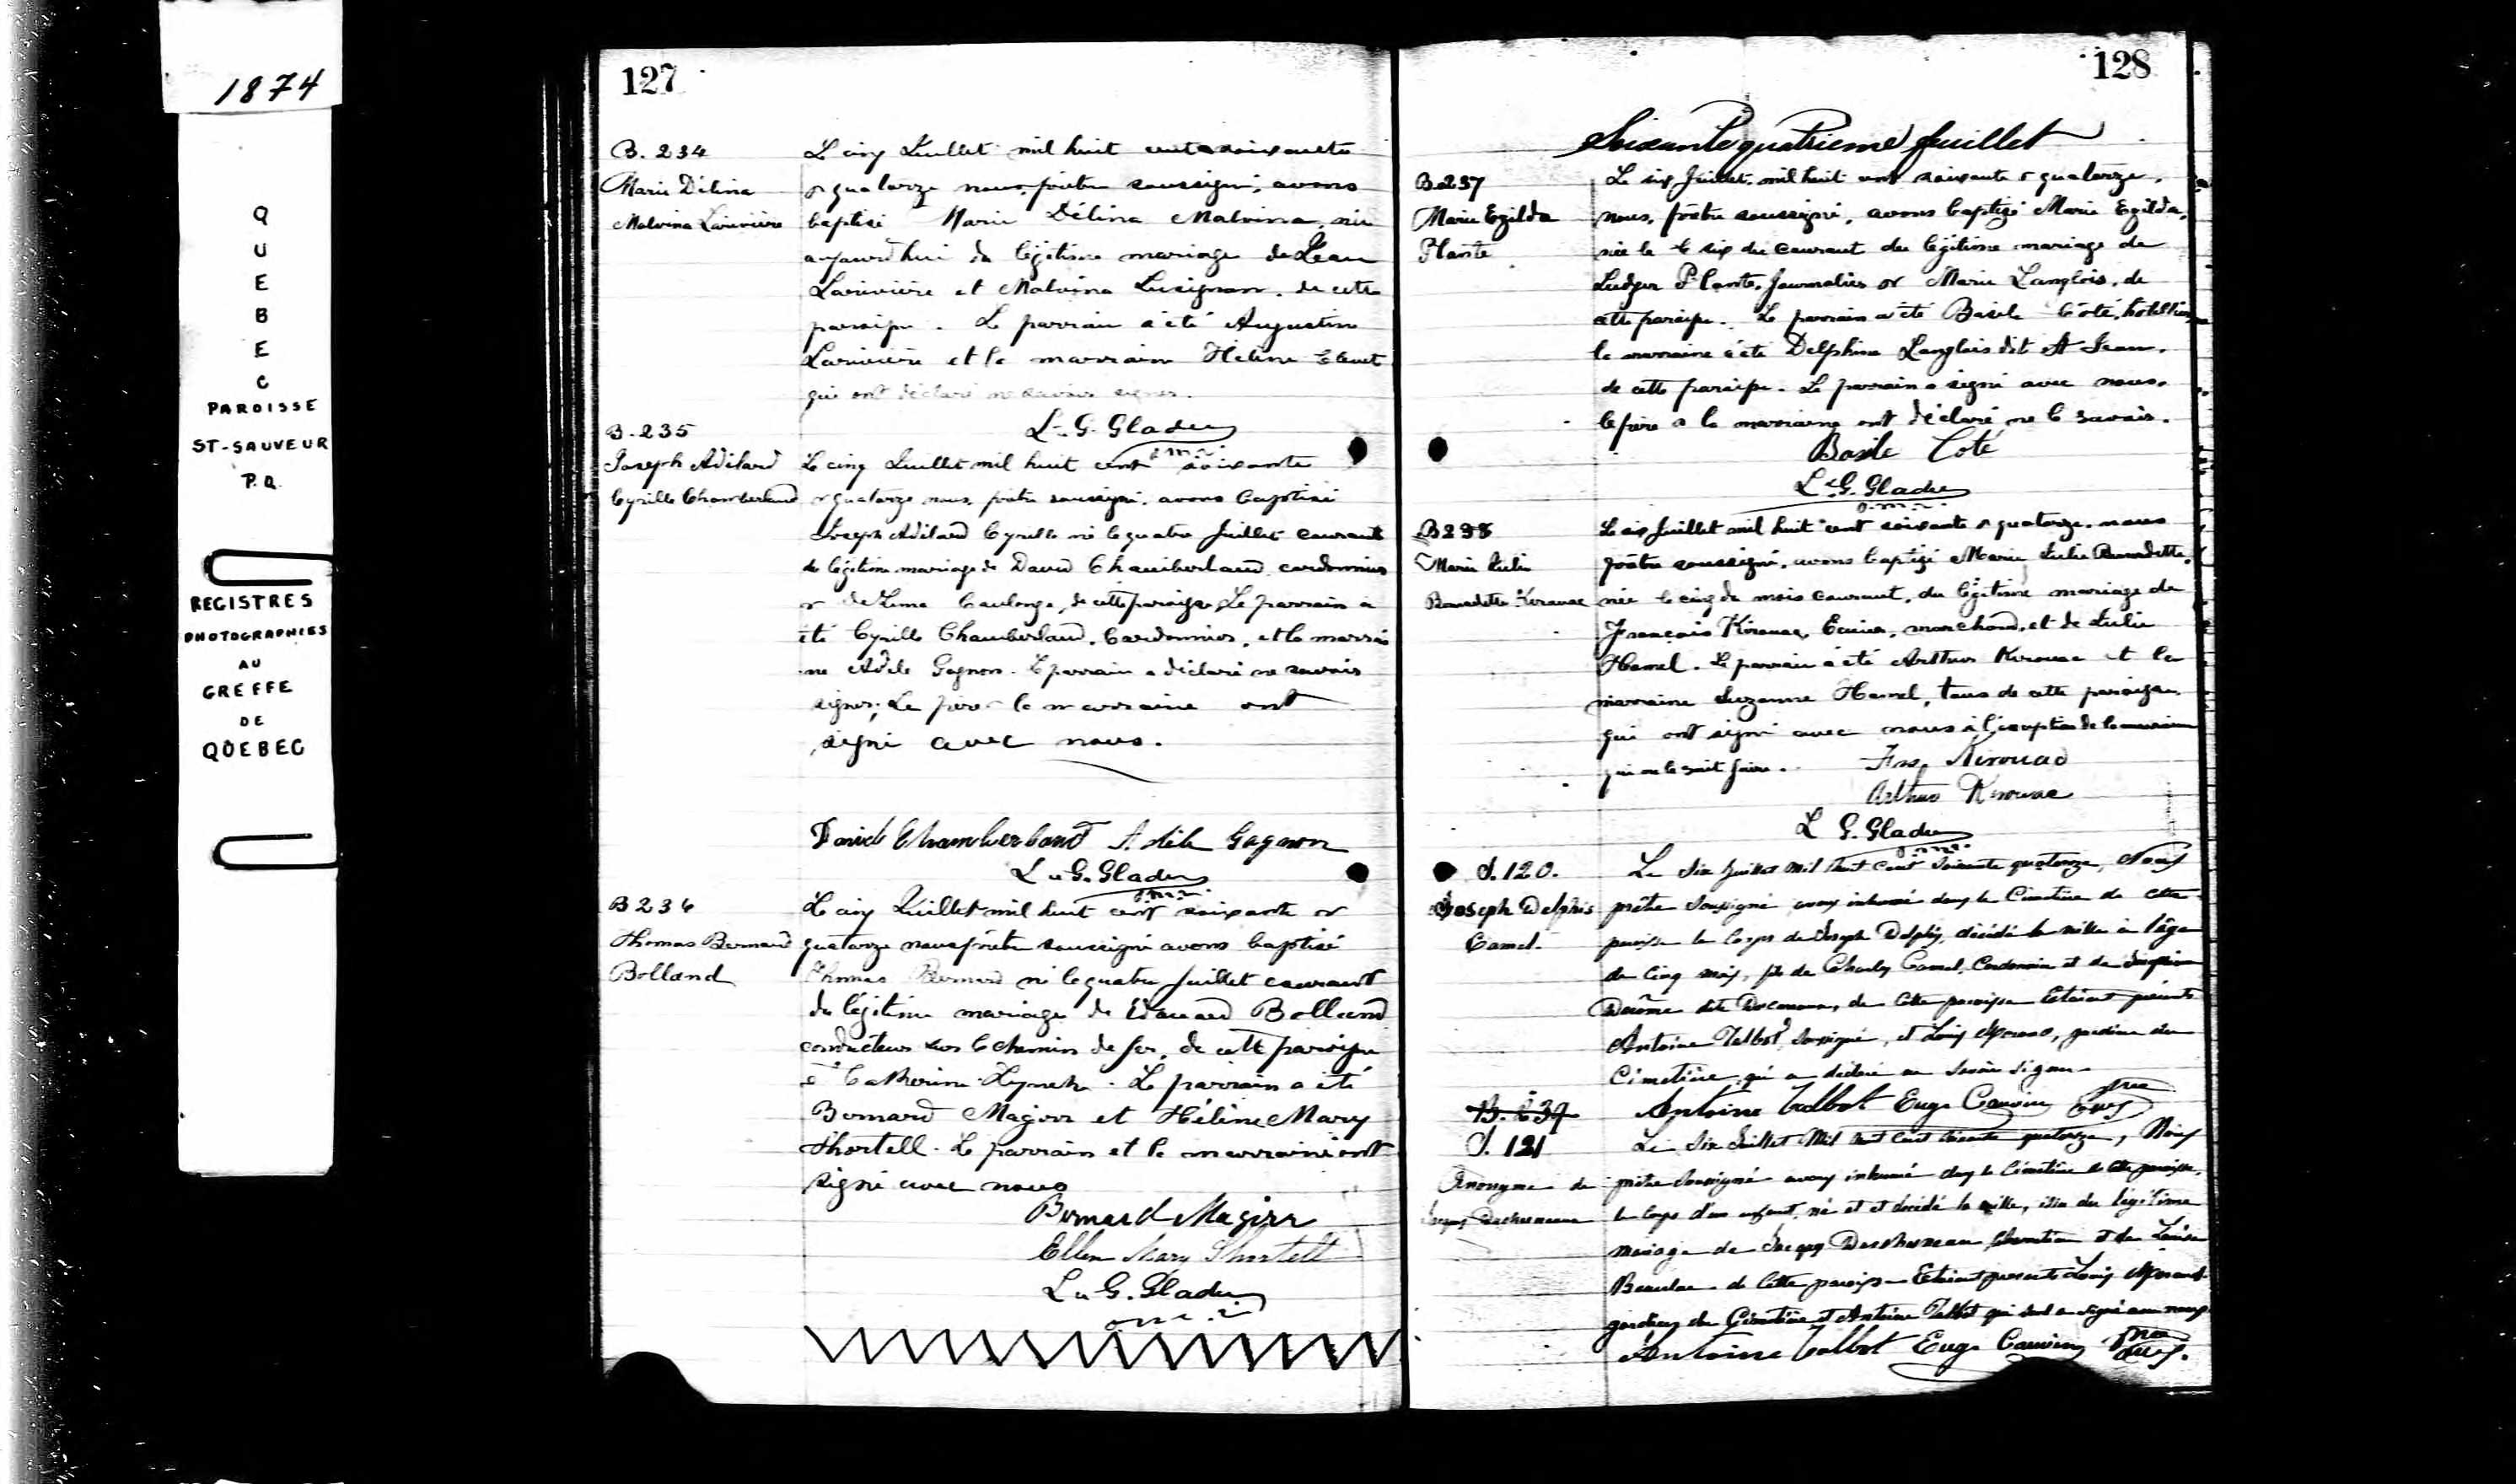 1874
QUEBEC
PAROISSE
ST-SAUVEUR
P.Q.
REGISTRES
PHOTOGRAPHIES
AU
GREFFE
DE
QUEBEC
127
B. 234
Marie Délina
Malvina Larivière
Le cinq Juillet mil huit cent soixante
& quatorze nous, prêtre soussigné, avons
baptisé Marie Délina Malvina, née
aujourd'hui du légitime mariage de Jean
Larivière et Malvina Lusignan, de cette
paroisse. Le parrain a été Augustin
Larivière et la marraine Hélène
qui ont déclaré ne savoir signer.
L. G. Gladu
o.m.i.
B. 235
Joseph Adélard
Cyrille Chamberland
Le cinq Juillet mil huit cent soixante
& quatorze nous, prêtre soussigné, avons baptisé
Joseph Adélard Cyrille né le quatre Juillet courant
du légitime mariage de David Chamberland, cordonnier
& de Lima de cette paroisse. Le parrain a
été Cyrille Chamberland, Cordonnier, et la marrai
ne Adèle Gagnon. Le parrain a déclaré ne savoir
signer; Le père & la marraine ont
signé avec nous.
David Chamberland Adèle Gagnon
L. G. Gladu
o.m.i.
B 236
Thomas Bernard
Bolland
Le cinq Juillet mil huit cent soixante &
quatorze nous prêtre soussigné avons baptisé
Thomas Bernard né le quatre Juillet courant
du légitime mariage de Edouard Bolland
conducteur sur le chemin de fer, de cette paroisse
& Catherine Lynch. Le parrain a été
Bernard Magirr et Hélène Mary
Shortell. Le parrain et la marraine ont
signé avec nous
Bernard Magirr
Ellen Mary Shortell
L. G. Gladu
o.m.i.
128
Soixante quatrième feuillet
B. 237
Marie Exilda
Plante
Le six Juillet, mil huit cent soixante & quatorze,
nous, prêtre soussigné, avons baptisé Marie Exilda,
née le le six du courant du légitime mariage de
Ledger Plante, Journalier & Marie Langlois, de
cette paroisse. Le parrain a été Basile Côté, hôtellier,
la marraine a été Delphine Langlois dit St Jean,
de cette paroisse. Le parrain a signé avec nous,
le père & la marraine ont déclaré ne le savoir.
Basile Coté
L. G. Gladu
o.m.i.
B 238
Marie Julie
Bernadette Kerouac
Le six Juillet mil huit cent soixante & quatorze, nous
prêtre soussigné, avons baptisé Marie Julie Bernadette,
née le cinq du mois courant, du légitime mariage de
François Kirouac, Ecuier, marchand, et de Julie
Hamel. Le parrain a été Arthur Kirouac et la
marraine Suzanne Hamel, tous de cette paroisse
qui ont signé avec nous à l'exception de la marraine
qui ne le sait faire.
Frs. Kirouac
Arthur Kirouac
L. G. Gladu
o.m.i.
S. 120.
Joseph Delphis
Camel.
Le Six Juillet mil huit Cent Soixante quatorze, Nous
prêtre Soussigné avons inhumé dans le Cimetière de cette
paroisse le Corps de Joseph Delphis, décédé la veille à l'âge
de Cinq mois, fils de Charles Camel, Cordonnier et de
dite de Cette paroisse Etaient présents
Antoine Talbot, Soussigné, et Louis gardien du
Cimetière qui a déclaré ne Savoir Signer.
Antoine Talbot Eug. Cauvin Ptre
B. 239
S. 121
Anonyme de
Le Six Juillet Mil huit Cent Soixante quatorze, Nous
prêtre Soussigné avons inhumé dans le Cimetière de cette paroisse,
le Corps d'un enfant, né et et décédé la veille, issu du légitime
mariage de Jacques et de Louise
de Cette paroisse Etaient présents Louis
gardien du Cimetière et Antoine Talbot qui seul a Signé avec nous
Antoine Talbot Eug. Cauvin Ptre